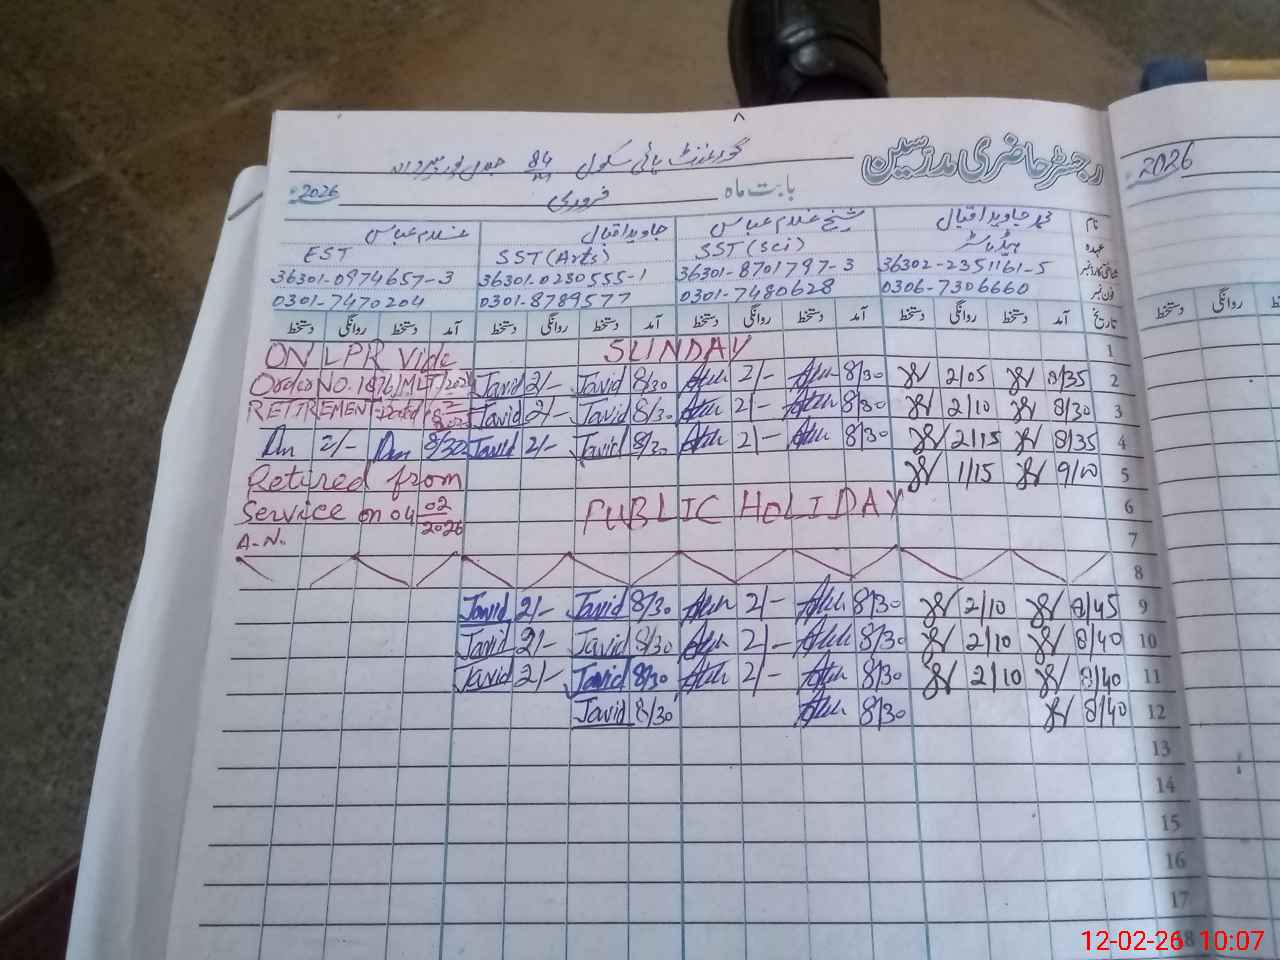 رجسٹر حاضری مدرسین گورنمنٹ ہائی سکول 84
بابت ماہ فروری 2026
نام محمد جاوید اقبال شیخ غلام عباس جاوید اقبال غلام عباس
عہدہ ہیڈ ماسٹر SST (Sci) SST (Arts) EST
36302-2351161-5 36301-8701797-3 36301-0230555-1 36301-0974657-3
فون نمبر 0306-7306660 0301-7480628 0301-8789577 0301-7470204
تاریخ آمد دستخط روانگی دستخط آمد دستخط روانگی دستخط آمد دستخط روانگی دستخط آمد دستخط روانگی دستخط
ON LPR Vide SUNDAY 1
Order NO. Javid 2/- Javid 8/30 2/- 8/30 2/05 8/35 2
RETIREMENT Javid 2/- Javid 8/30 2/- 8/30 2/10 8/30 3
2/- 8/30 Javid 2/- Javid 8/30 2/- 8/30 2/15 8/35 4
Retired from 1/15 9/10 5
Service on 04 02/2026 PUBLIC HOLIDAY 6
A-N. 7
8
Javid 2/- Javid 8/30 2/- 8/30 2/10 8/45 9
Javid 2/- Javid 8/30 2/- 8/30 2/10 8/40 10
Javid 2/- Javid 8/30 2/- 8/30 2/10 8/40 11
Javid 8/30 8/30 8/40 12
13
14
15
16
17
18
2026
آمد دستخط روانگی دستخط
12-02-26 10:07